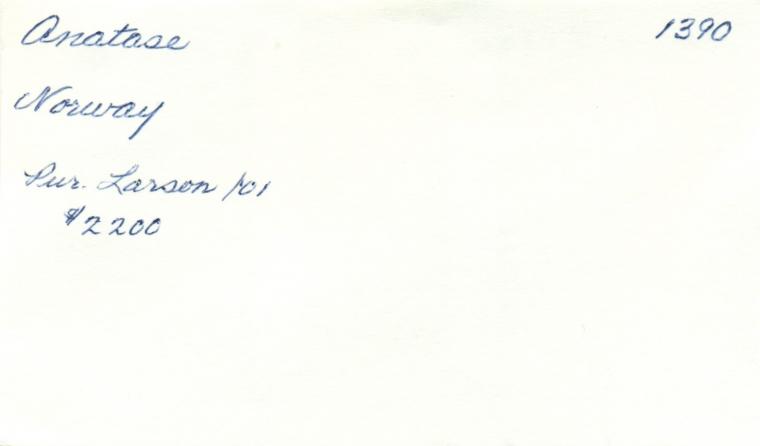 Anatase 1390
Norway
Pur. Larson '01
$2200